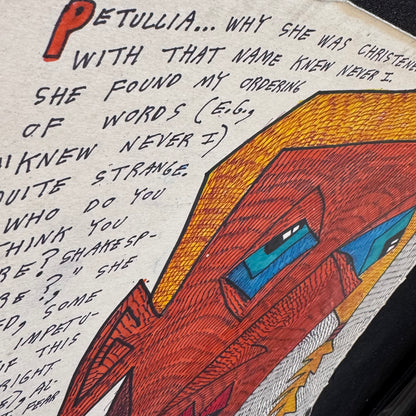 PETULLIA... WHY SHE WAS CHRISTENE
WITH THAT NAME KNEW NEVER I.
SHE FOUND MY ORDERING
OF WORDS (E.G.,
"I KNEW NEVER I)
QUITE STRANGE.
WHO DO YOU
THINK YOU
RE? SHAKESP-
RE?," SHE
ED, SOME
IMPETU-
IF THIS
RIGHT
), AL-
FEAR